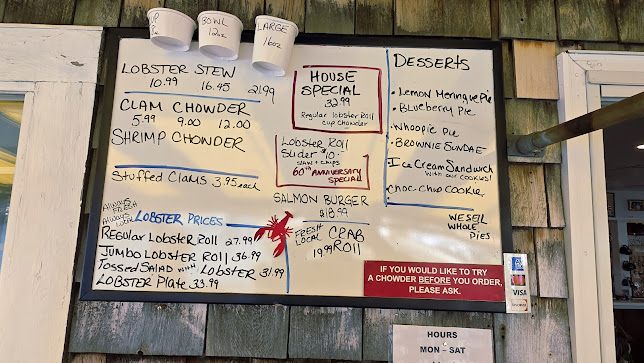 BOWL
12oz
LARGE
16oz
LOBSTER STEW
10.99 16.45 21.99
CLAM CHOWDER
5.99 9.00 12.00
SHRIMP CHOWDER
Stuffed Clams 3.95 each
Always Fresh
Always Local
LOBSTER PRICES
REGULAR LOBSTER ROLL 27.99
JUMBO LOBSTER ROLL 36.99
Tossed SALAD with LOBSTER 31.99
LOBSTER PLATE 33.99
HOUSE
SPECIAL
32.99
Regular lobster Roll
cup chowder
Lobster Roll
Slider $10.
SLAW + CHIPS
60th ANNIVERSARY
SPECIAL
SALMON BURGER
$18.99
FRESH
LOCAL
CRAB
19.99 ROLL
DESSERTS
• Lemon Meringue Pie
• Blueberry Pie
• Whoopie Pie
• BROWNIE SUNDAE
Ice Cream Sandwich
with our cookies!
Choc. Chip Cookie
WE SELL
WHOLE
PIES
IF YOU WOULD LIKE TO TRY
A CHOWDER BEFORE YOU ORDER,
PLEASE ASK.
VISA
HOURS
MON – SAT